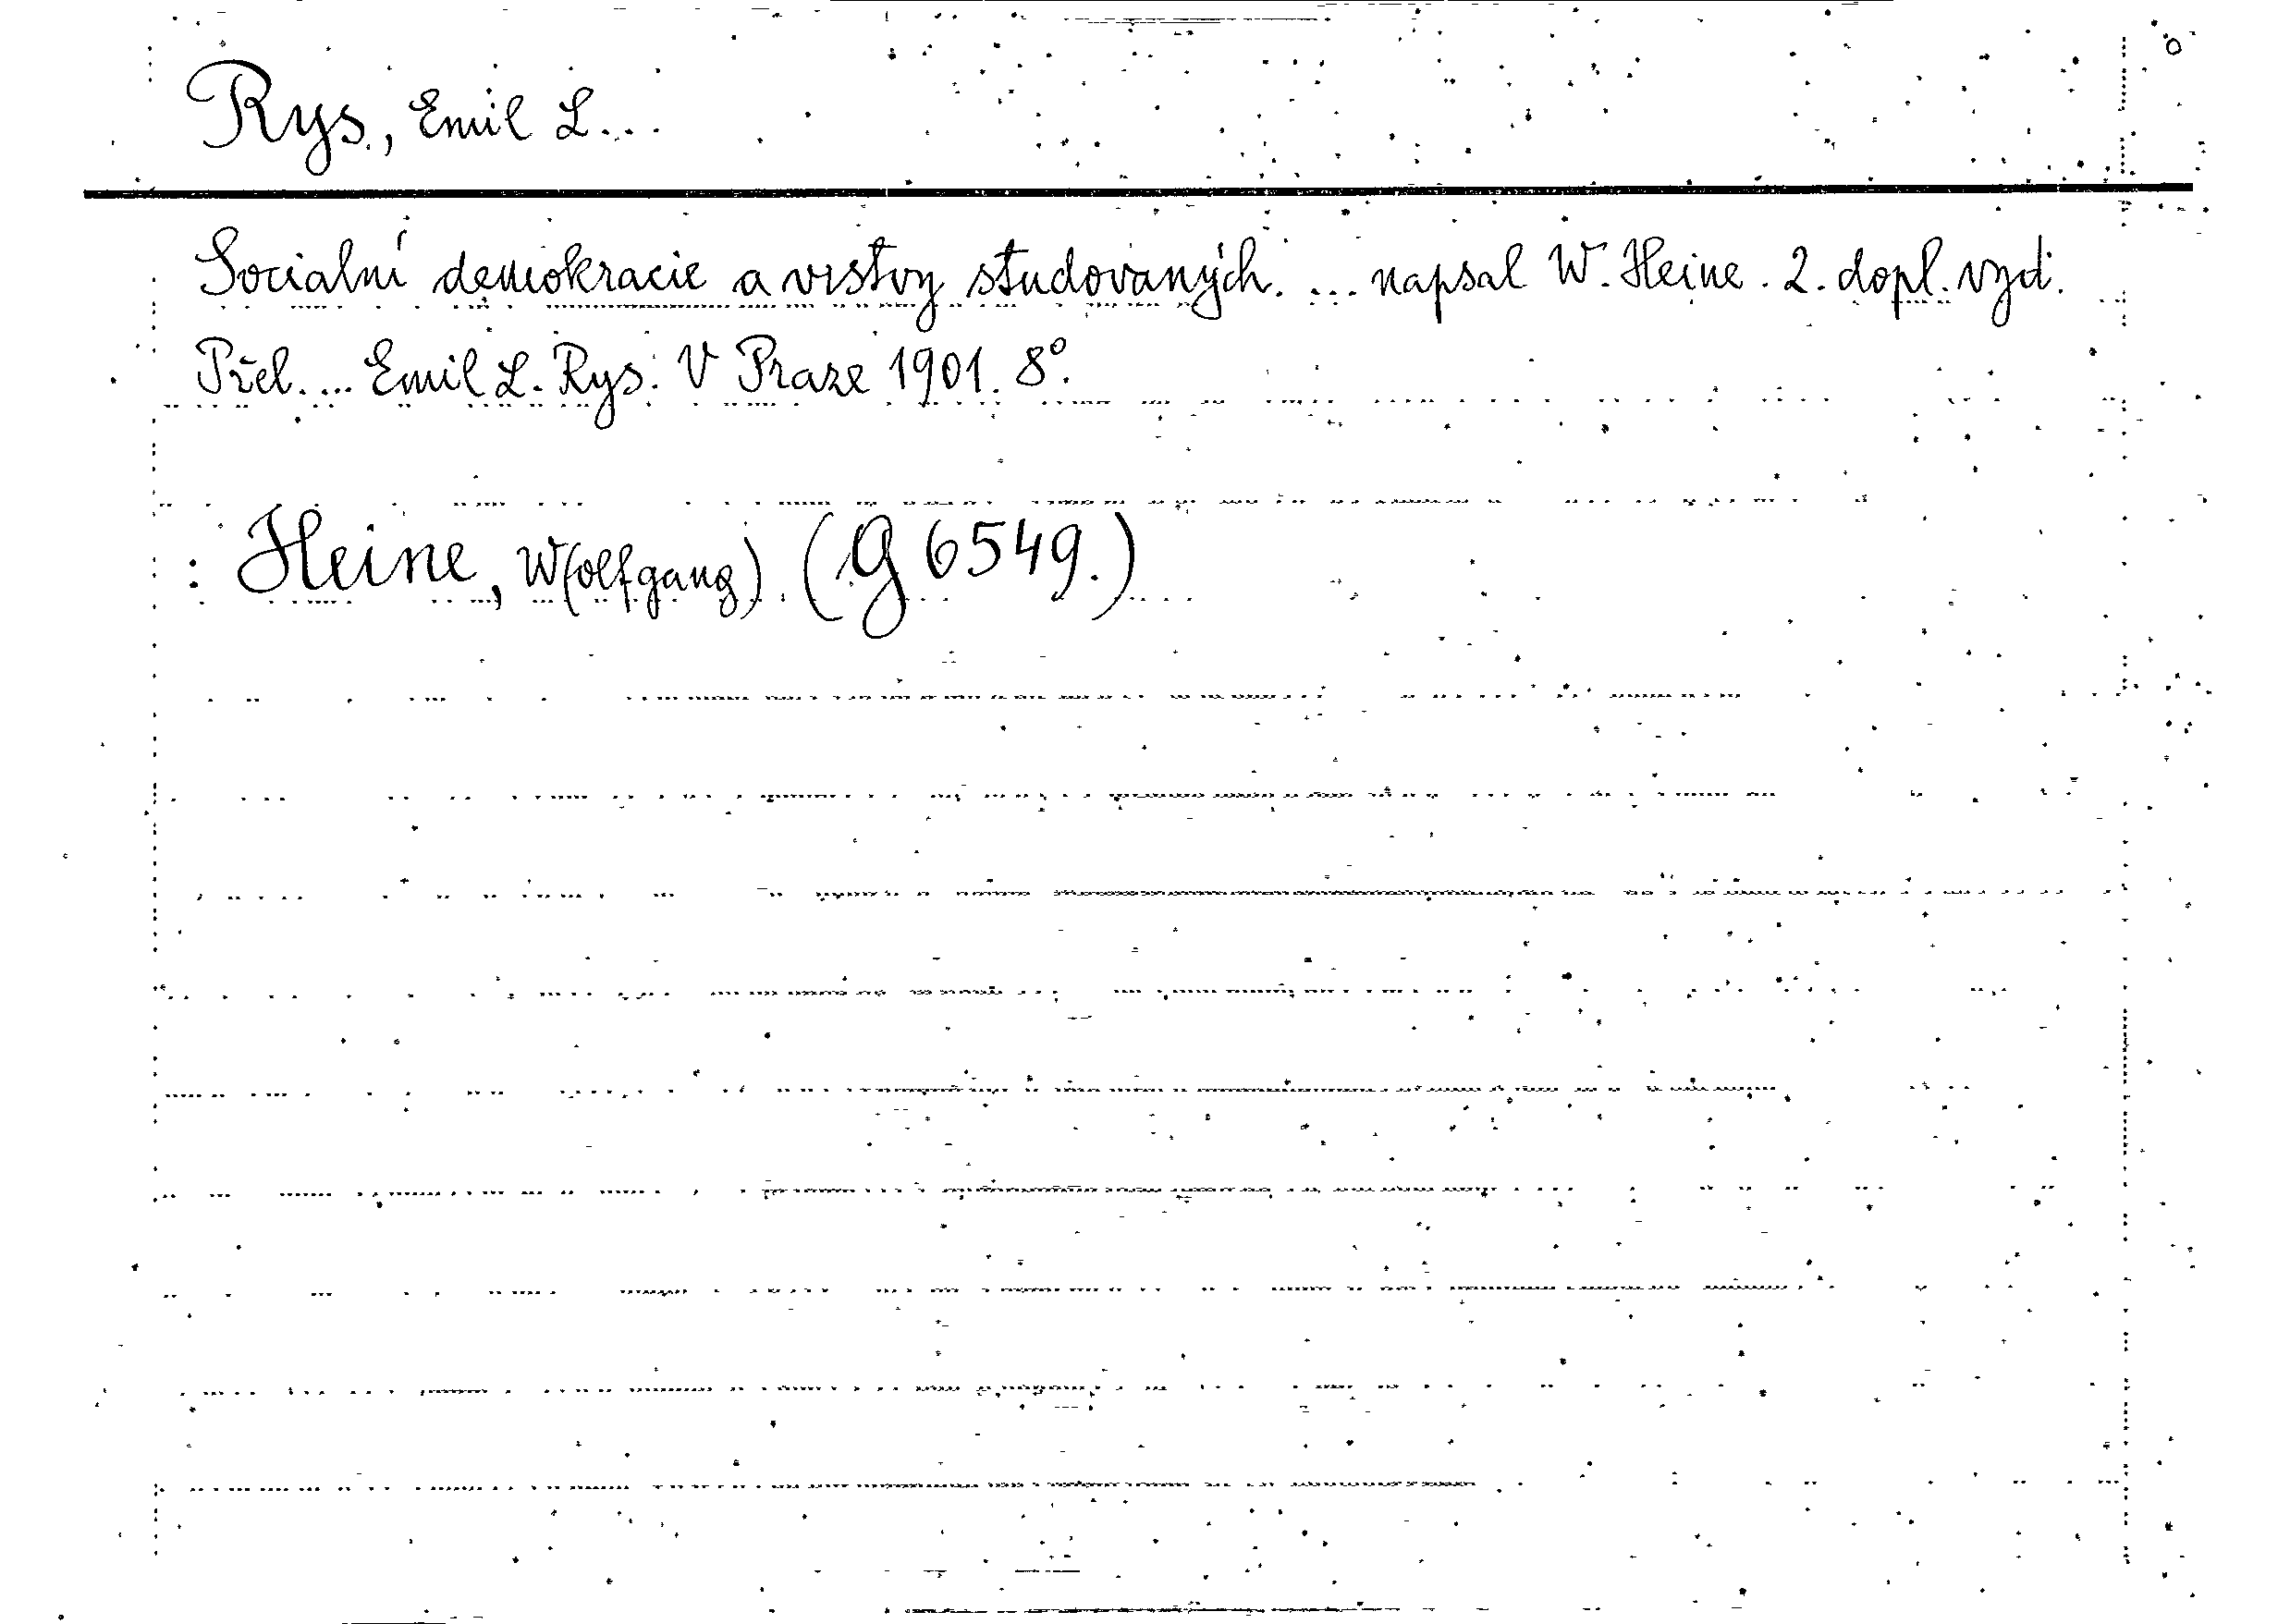 Rys, Emil L...
Socialní demokracie a vrstvy studovaných. ... napsal W. Heine. 2. dopl. vyd.
Přel. ... Emil L. Rys. V Praze 1901. 8°.
: Heine, W(olfgang) (G 6549.)